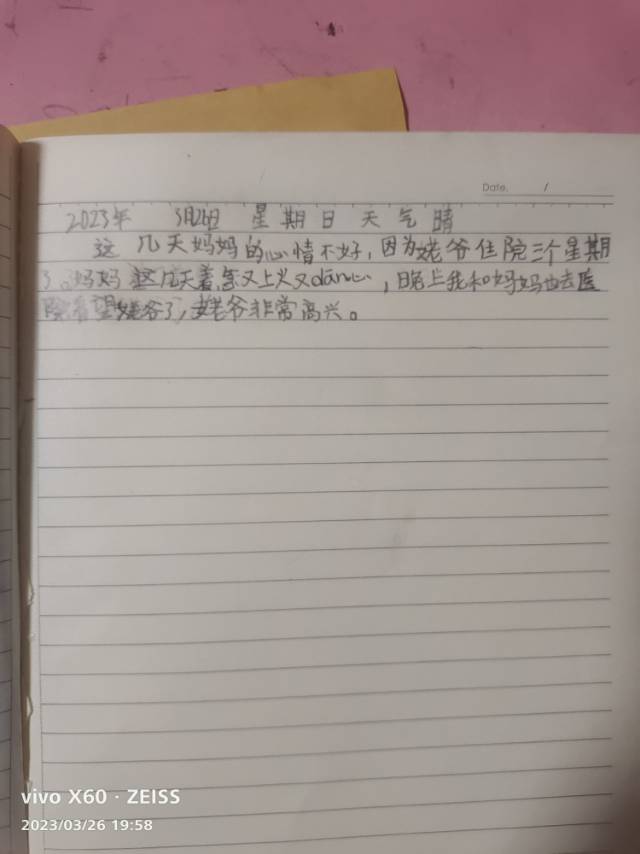 Date. /
2023年 3月26日 星期日 天气晴
这几天妈妈的心情不好，因为姥爷住院三个星期
了。妈妈这几天着急又上火又dān心，晚上我和妈妈也去医
院看望姥爷了，姥爷非常高兴。
vivo X60 · ZEISS
2023/03/26 19:58